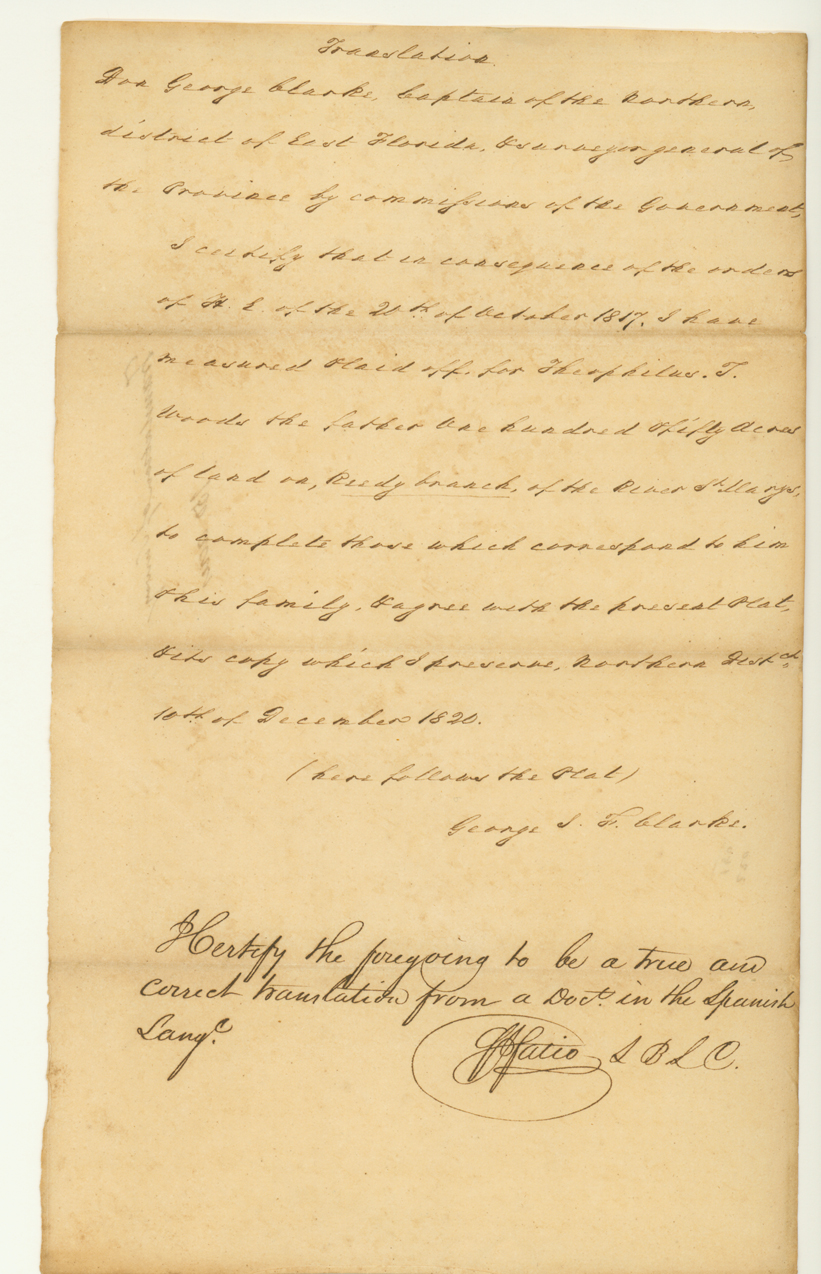 Translation.
Don George Clarke, Captain of the Northern,
district of East Florida, & surveyor general of
the Province by commissions of the Government,
I certify that in consequence of the orders
of H. E. of the 20th of October 1817. I have
measured & laid off, for Theophilus. T.
Woods the father One hundred & fifty Acres
of land on, Reedy branch, of the River St. Marys,
to complete those which correspond to him
& his family, & agree with the present Plat,
& its copy which I preserve, Northern Distct.
10th of December 1820.
(here follows the Plat)
George J. F. Clarke.
I Certify the foregoing to be a true and
correct translation from a Doct. in the Spanish
Lange.
F J Fatio S B L C.